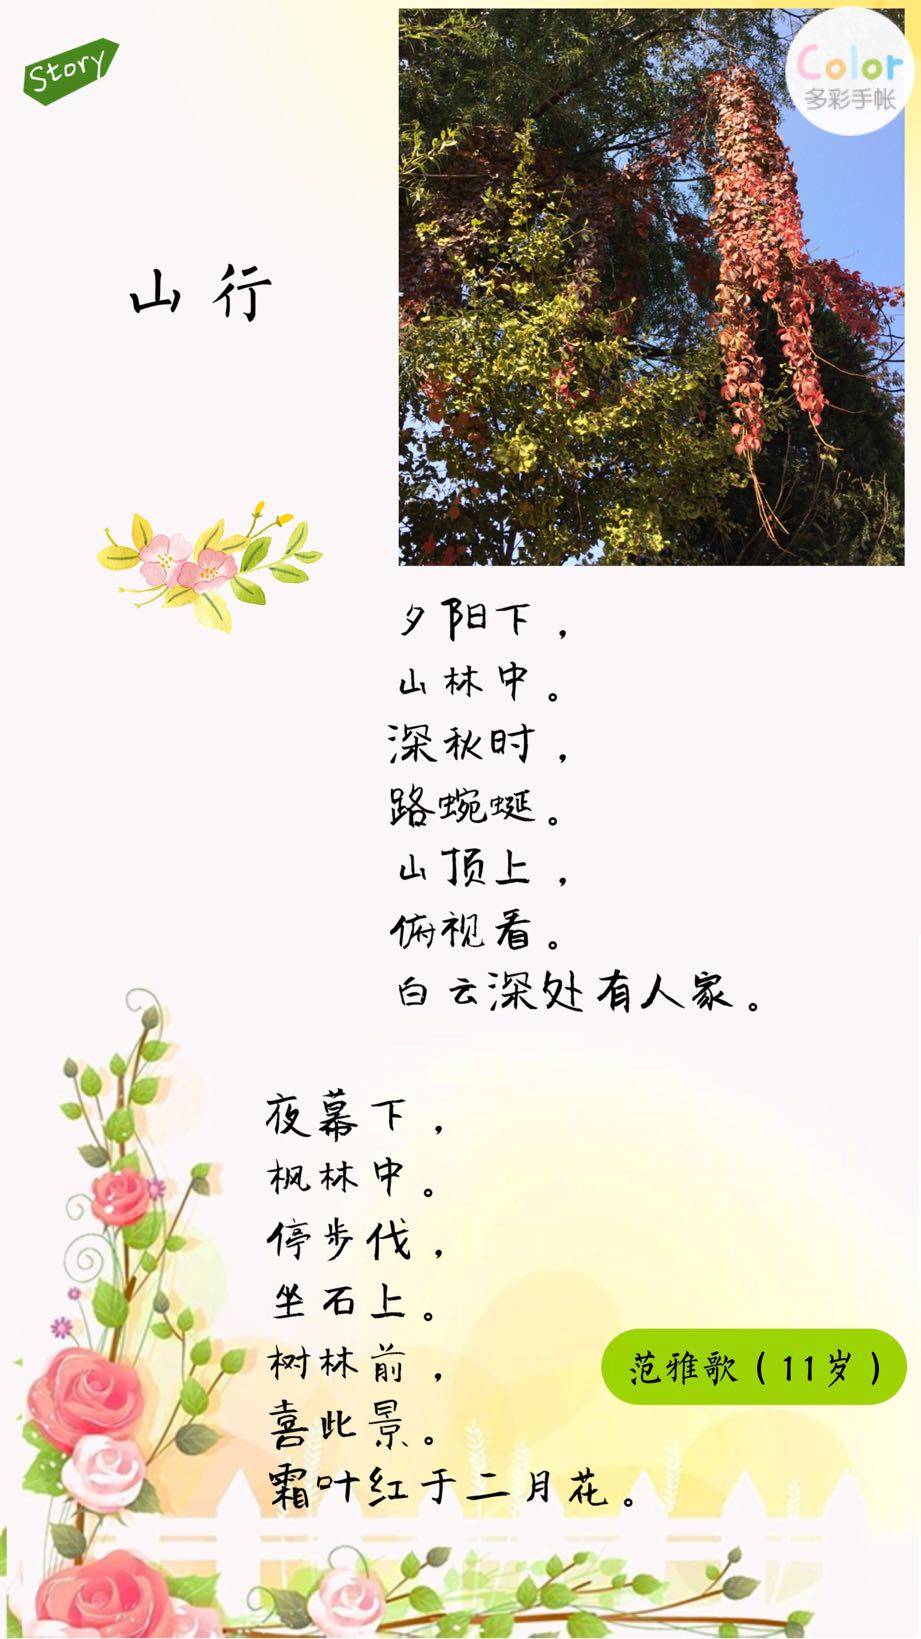 Story
Color
多彩手帐
山行
夕阳下，
山林中。
深秋时，
路蜿蜒。
山顶上，
俯视看。
白云深处有人家。
夜幕下，
枫林中。
停步伐，
坐石上。
树林前，
喜此景。
霜叶红于二月花。
范雅歌（11岁）